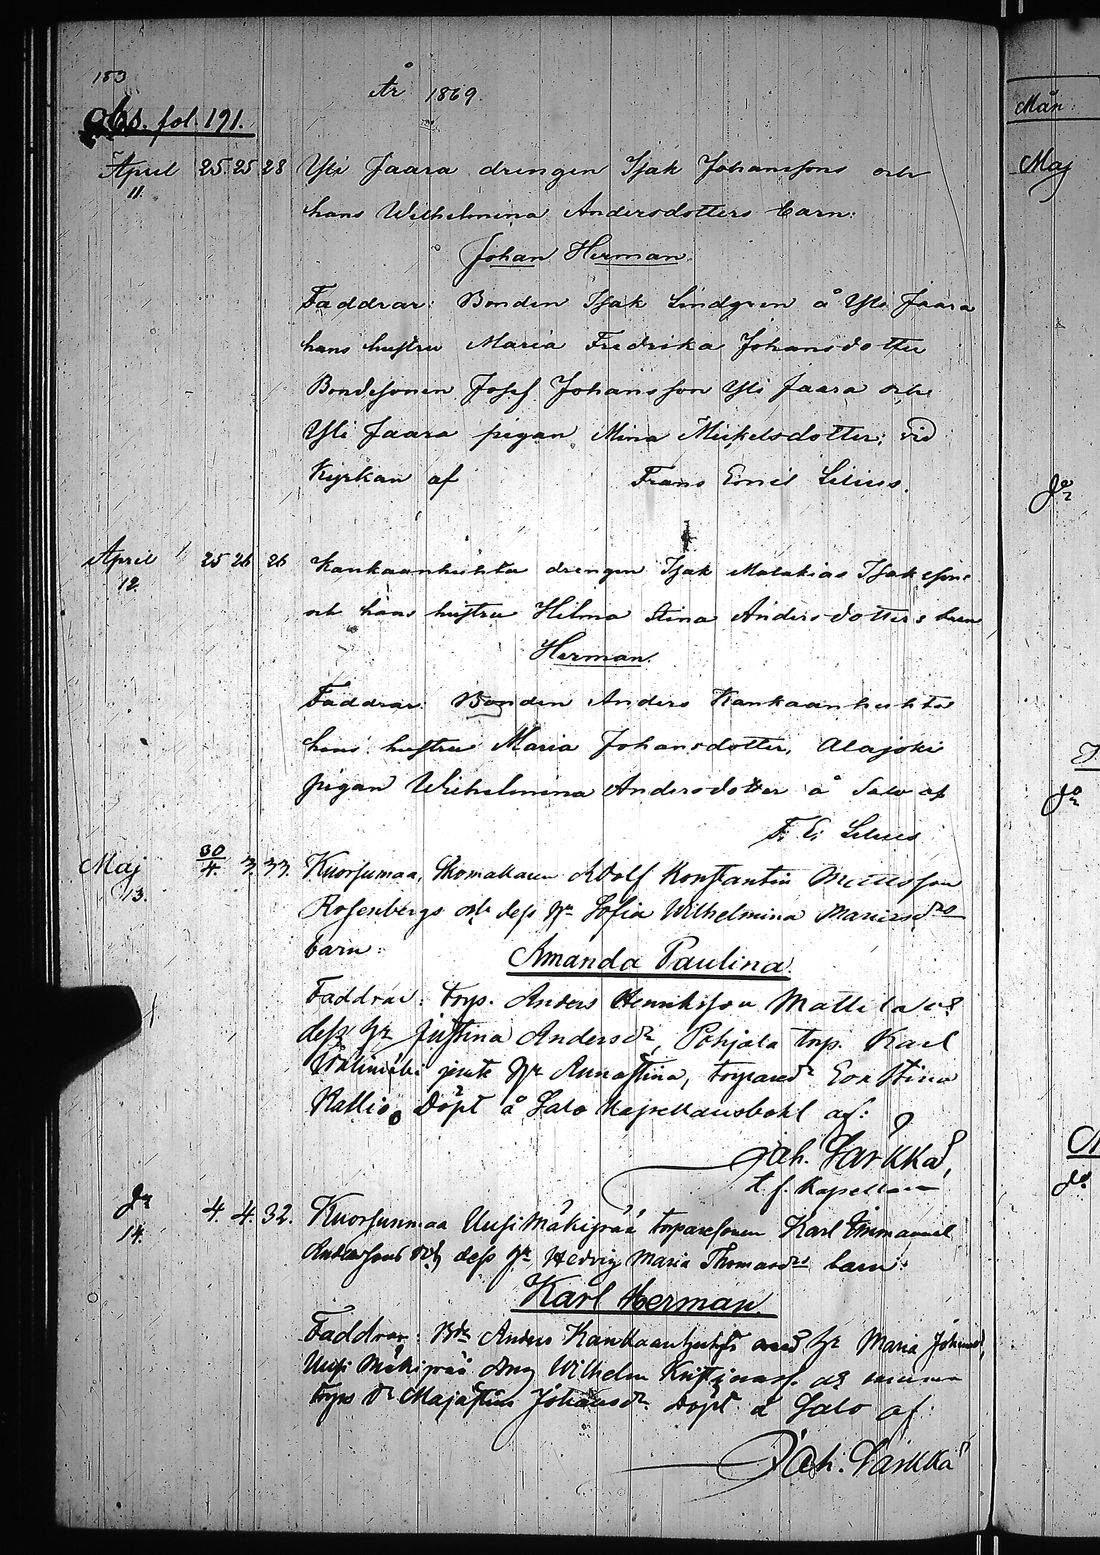 153
År 1869.
Obs. fol. 191.
April 25 25 28 Yli Jaara drengen Isak Johanssons och
11. hans Wilhelmina Andersdotters barn:
Johan Herman.
Faddrar: Bonden Isak Lindgren å Yli Jaara
hans hustru Maria Fredrika Johansdotter
Bondesonen Josef Johansson Yli Jaara och
Yli Jaara pigan Mina Mickelsdotter; vid
Kyrkan af Frans Emil Lilius.
April 25 26 26 Kankaanhuhta drengen Isak Malakias Isakssons
12. och hans hustru Hilma Stina Andersdotters barn
Herman.
Faddrar: Bonden Anders Kankaanhuhta
hans hustru Maria Johansdotter, Alajoki
pigan Wilhelmina Andersdotter å Salo af
F. E. Lilius
Maj 30/4. 3. 33. Kuorsumaa, Skomakaren Adolf Konstantin
13. Rosenbergs och dess hr Sofia Wilhelmina
barn:
Amanda Paulina.
Faddrar: torp. Anders Henriksson Mattila och
dess hr Justina Andersdr, Pohjala torp. Karl
jemte hr Annastina, Eva Stina
Kallio. Döpt å Salo Kapellansbohl af:
Joh. Särkkä,
t. f. Kapellan
do 4. 4. 32. Kuorsunmaa Uusi Mäkiprää torparesonen Karl Emmanuel
14. Anderssons och dess hr Hedvig Maria Thomasdrs barn:
Karl Herman.
Faddrar: Bdn Anders Kankaanhuhta med hr Maria Johansd,
Uusi Mäkiprää drng Wilhelm
torps dr Majastina Johansdr. Döpt å Salo af
Joh. Särkkä
Mån
Maj
do
do
do